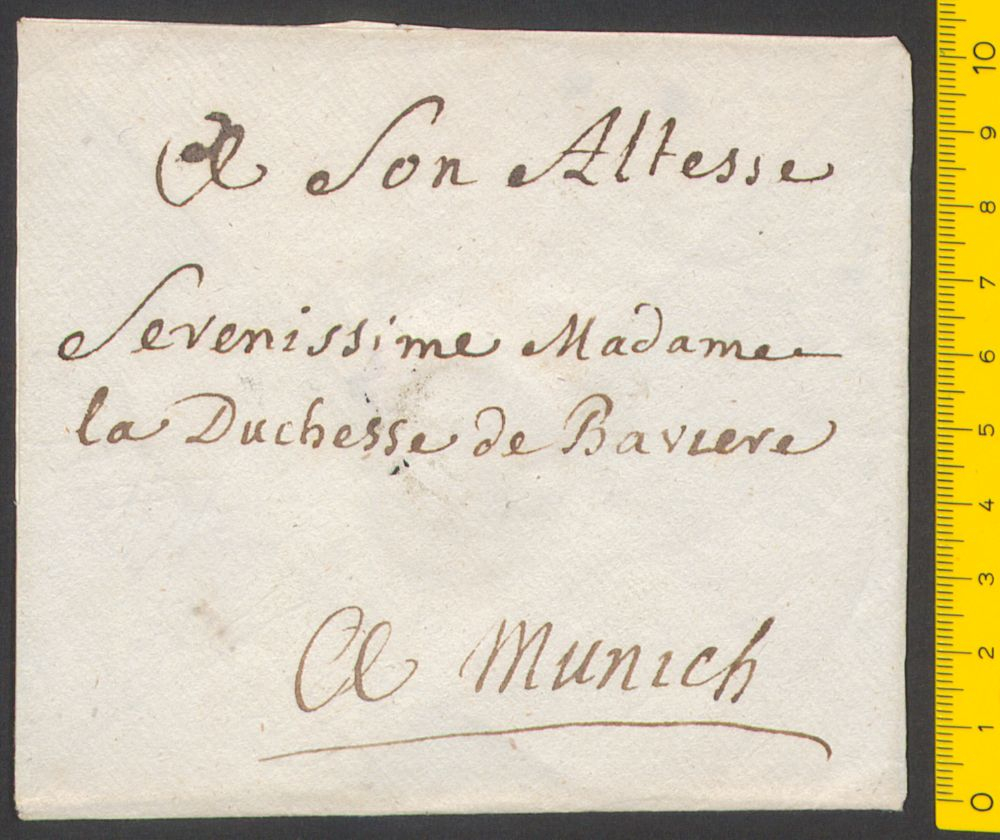 A Son Altesse
Serenissime Madame
la Duchesse de Baviere
A Munich
0 1 2 3 4 5 6 7 8 9 10